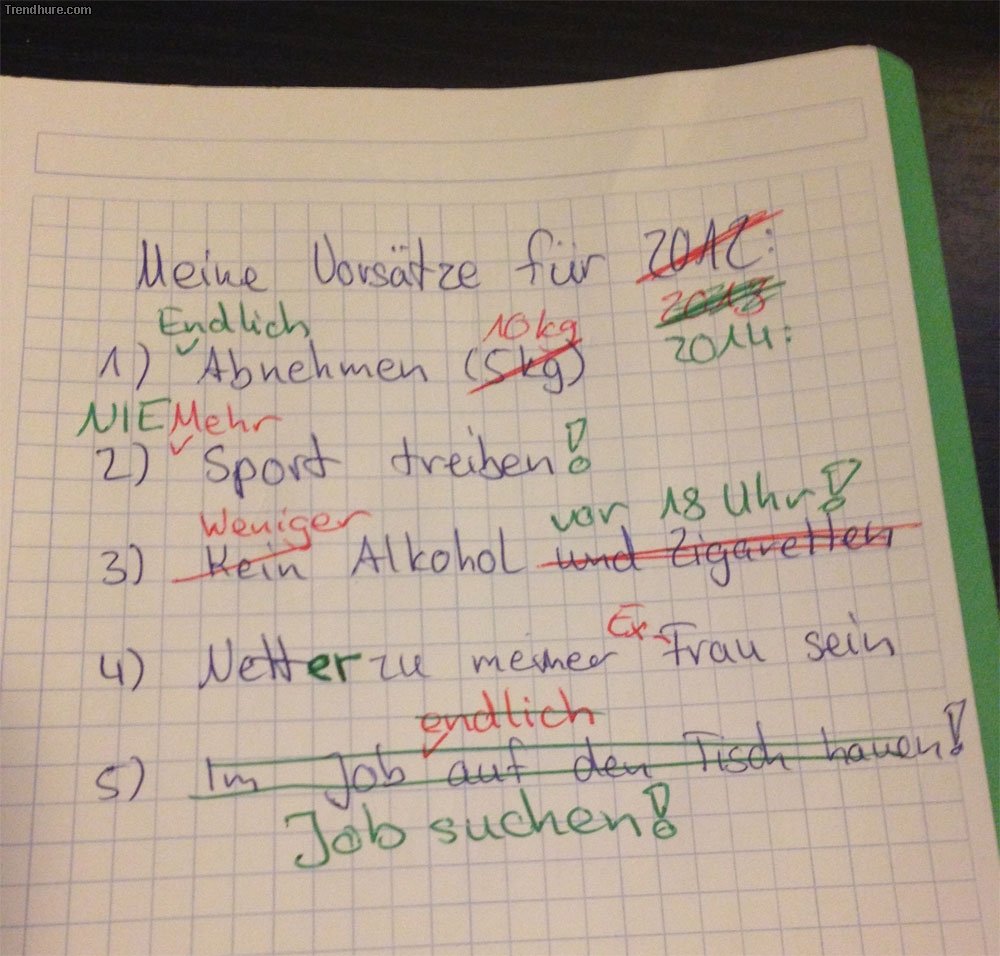 Trendhure.com
Meine Vorsätze für 2012:
2013
2014:
Endlich
10kg
1) Abnehmen (5kg)
NIE Mehr
2) Sport treiben!
Weniger
vor 18 Uhr!
3) Kein Alkohol und Zigaretten
Ex-
4) Netter zu meiner Frau sein
endlich
5) Im Job auf den Tisch hauen!
Job suchen!